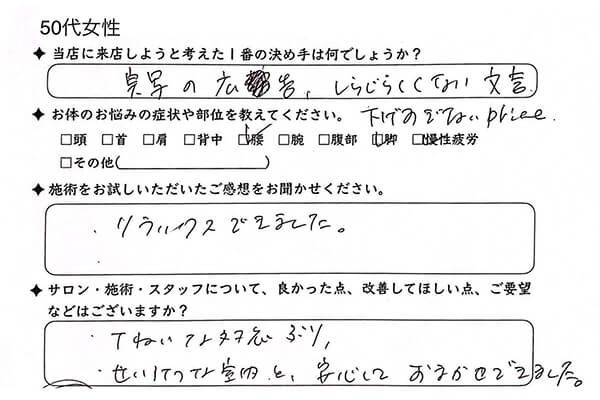 50代女性
✦ 当店に来店しようと考えた1番の決め手は何でしょうか?
の広告、しらじらしくない文言。
✦ お体のお悩みの症状や部位を教えてください。 price.
□頭 □首 □肩 □背中 ☑腰 □腕 □腹部 ☑脚 ☑慢性疲労
□その他( )
✦ 施術をお試しいただいたご感想をお聞かせください。
・リラックスできました。
・
✦ サロン・施術・スタッフについて、良かった点、改善してほしい点、ご要望
などはございますか?
・ていねいな対応ぶり、
・せいけつな室内と、安心して おまかせできました。